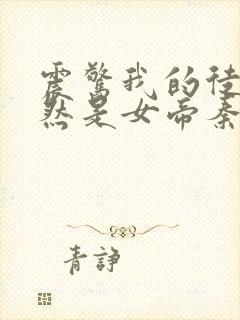 震惊我的徒
然是女帝秦
青諍